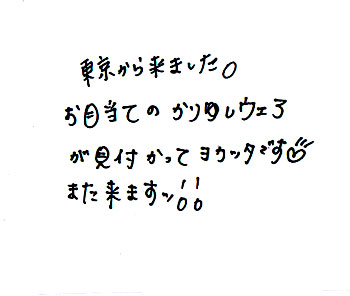 東京から来ました。
お目当ての かりゆしウェア
が見付かって ヨカッタです
また来ますッ!!